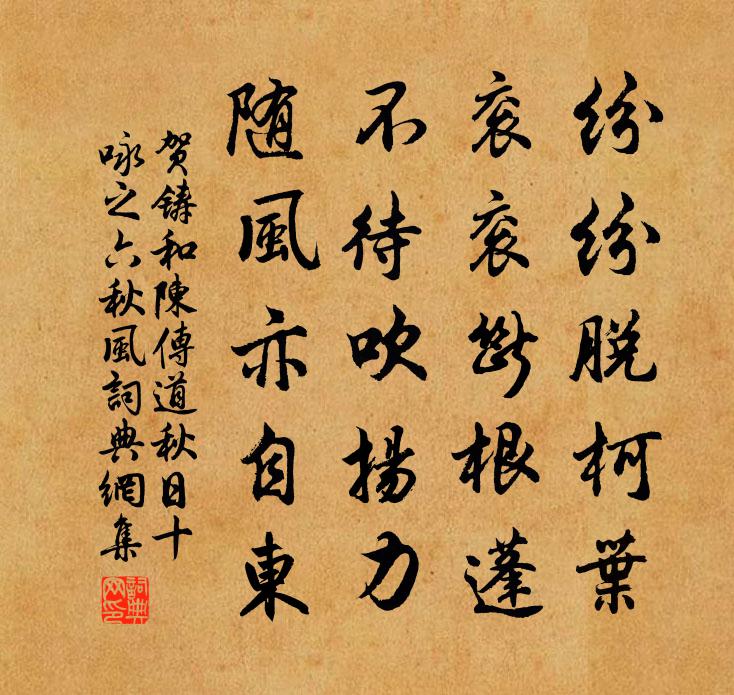 纷纷脱柯葉
衮衮斷根蓬
不待吹揚力
随風亦自東
贺鑄和陳傳道秋日十
咏之六秋風詞典網集
詞典
网印